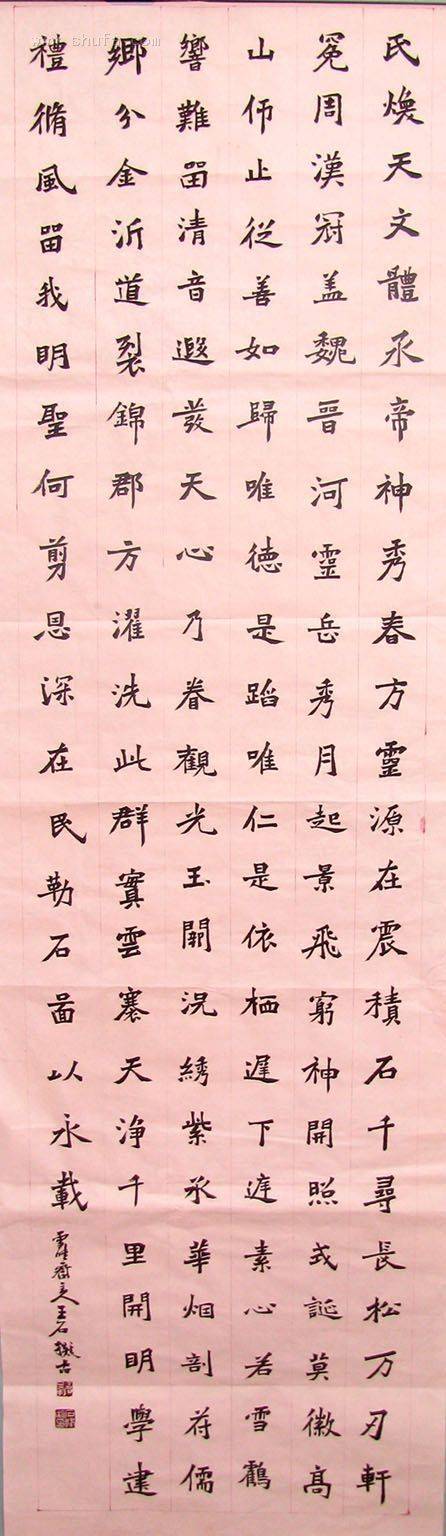 氏煥天文體承帝神秀春方靈源在震積石千尋長松万刃軒
冕周漢冠盖魏晉河靈岳秀月起景飛窮神開照式誕莫徽高
山仰止從善如歸唯德是蹈唯仁是依栖遲下庭素心若雪鶴
響難留清音遐發天心乃眷觀光玉闕況綉紫承華烟剖苻儒
鄉分金沂道裂錦郡方濯洗此群冥雲褰天淨千里開明學建
禮脩風留我明聖何剪恩深在民勒石啚以永載
齋主人王石擬古